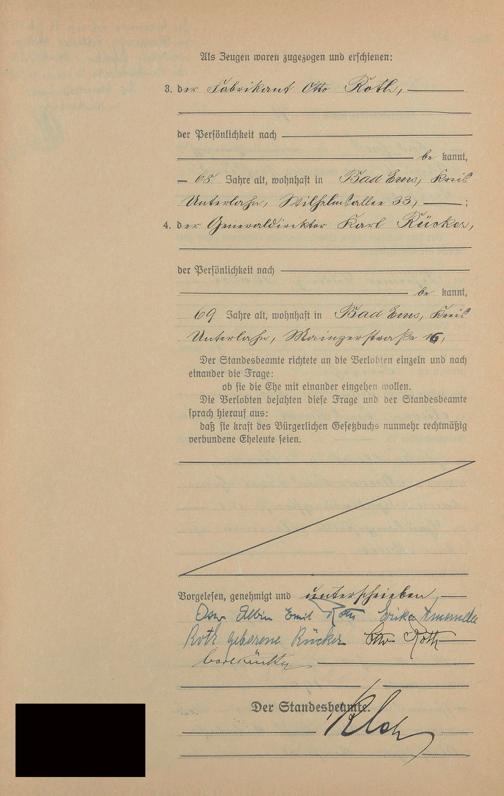 Als Zeugen waren zugezogen und erschienen:
3. der Fabrikant Otto Roth,
der Persönlichkeit nach
be kannt,
65 Jahre alt, wohnhaft in Bad Ems, Kreis
Unterlahn, Wilhelmsallee 33, ;
4. der Generaldirektor Karl Rücker,
der Persönlichkeit nach
be kannt,
69 Jahre alt, wohnhaft in Bad Ems, Kreis
Unterlahn, Mainzerstraße 16,
Der Standesbeamte richtete an die Verlobten einzeln und nach
einander die Frage:
ob sie die Ehe mit einander eingehen wollen.
Die Verlobten bejahten diese Frage und der Standesbeamte
sprach hierauf aus:
daß sie kraft des Bürgerlichen Gesetzbuchs nunmehr rechtmäßig
verbundene Eheleute seien.
Vorgelesen, genehmigt und unterschrieben,
Albin Emil Roth Erika Amanda
Roth geborene Rücker Otto Roth
Der Standesbeamte.